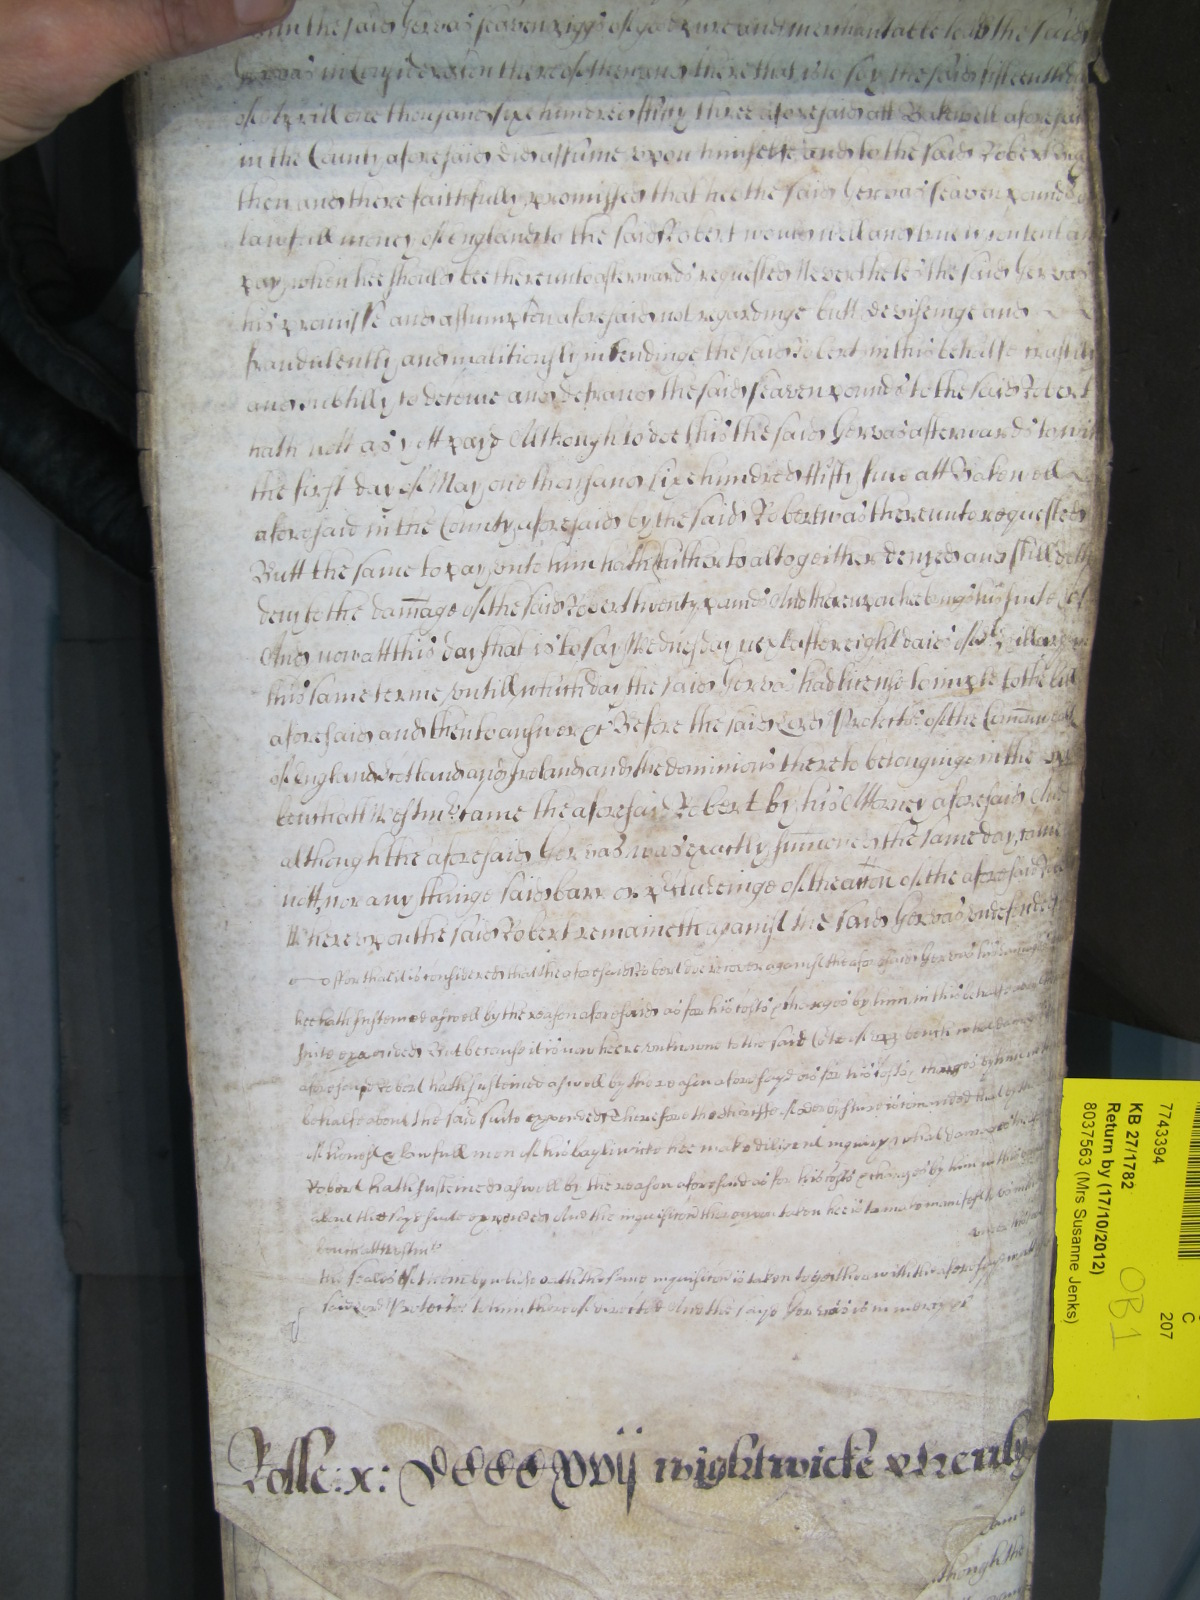 the said Gervas seaven of the said
Gervas in Consideracion thereof then and there that is to say the said fifteenth day
of Aprill one thousand sixe hundred fifty three aforesaid att Bakewell aforesaid
in the County aforesaid did assume upon himselfe and to the said Robert
then and there faithfully promissed that hee the said Gervas seaven pounds of
lawfull money of England to the said Robert would well and truely content and
pay when hee should bee thereunto afterwards requested Neverthelesse the said Gervas
his promisse and assumpcon aforesaid not regardinge butt devisinge and
fraudulently and malitiously intendinge the said Robert in this behalfe craftily
and subtilly to deceive and defraud the said seaven pounds to the said Robert
hath nott as yett payd Although to doe this the said Gervas afterwards to witt
the first day of May one thousand sixe hundred fifty five att Bakewell
aforesaid in the County aforesaid by the said Robert was thereunto requested
Butt the same to pay unto him hath hitherto altogeither denyed and still doth
deny to the damage of the said Robert twenty pounds And thereupon hee brings his suite &c
And now att this day that is to say Wednesday next after eight daies of St Hillary in
this same terme untill which day the said Gervas had license to imparle to the bill
aforesaid and then to answer &c Before the said Lord Protector of the Comonwealth
of England Scotland and Ireland and the dominions thereto belonginge in the upp
bench att Westmr came the aforesaid Robert by his Attorney aforesaid And
although the aforesaid Gervas was exactly sumoned the same day came
nott, nor any thinge said in barr or precludeinge of the accon of the aforesaid Robert
Whereupon the said Robert remaineth against the said Gervas undefended
soe that it is considered that the aforesaid Robert doe recover against the aforesaid Gervas his damages
hee hath susteined aswell by the reason aforesaid as for his costs & charges by him in this behalfe about his
suite expended But because it is now heere unknowne to the said Cote of upp bench what damages the
aforesaid Robert hath susteined aswell by the reason aforesayd as for his costs & charges by him in this
behalfe about the said suite expended Therefore the sheriffe of Derbyshire is comanded that by the
of honest & lawfull men of his baylywicke hee make diligent inquiry what damages the said
Robert hath susteined aswell by the reason aforesaid as for his costs & charges by him in this behalfe
about the sayd suite expended And the inquisicon thereupon taken hee is to make manifest
bench att Westmr
under the
the seales of them by whose oathe the same inquisicon is taken togeather with the aforesayd writt
said Lord Protector to him thereof directed And the sayd Gervas is in mercy &c
Rolle: x: CCCCXVij wightwicke & Henly
came
though the
7743394
KB 27/1782
Return by (17/10/2012)
8037563 (Mrs Susanne Jenks)
C
207
OB1